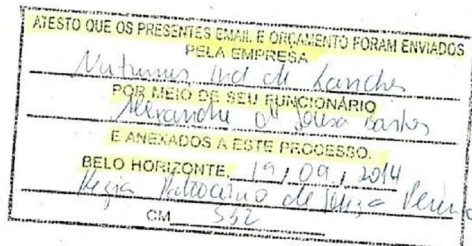 ATESTO QUE OS PRESENTES EMAIL E ORÇAMENTO FORAM ENVIADOS
PELA EMPRESA
Nutrimus Ind de Lanches
POR MEIO DE SEU FUNCIONÁRIO
Alexandre de Sousa Bastos
E ANEXADOS A ESTE PROCESSO.
BELO HORIZONTE, 19 / 09 / 2014
Regia Patrocinio de Souza
CM 552